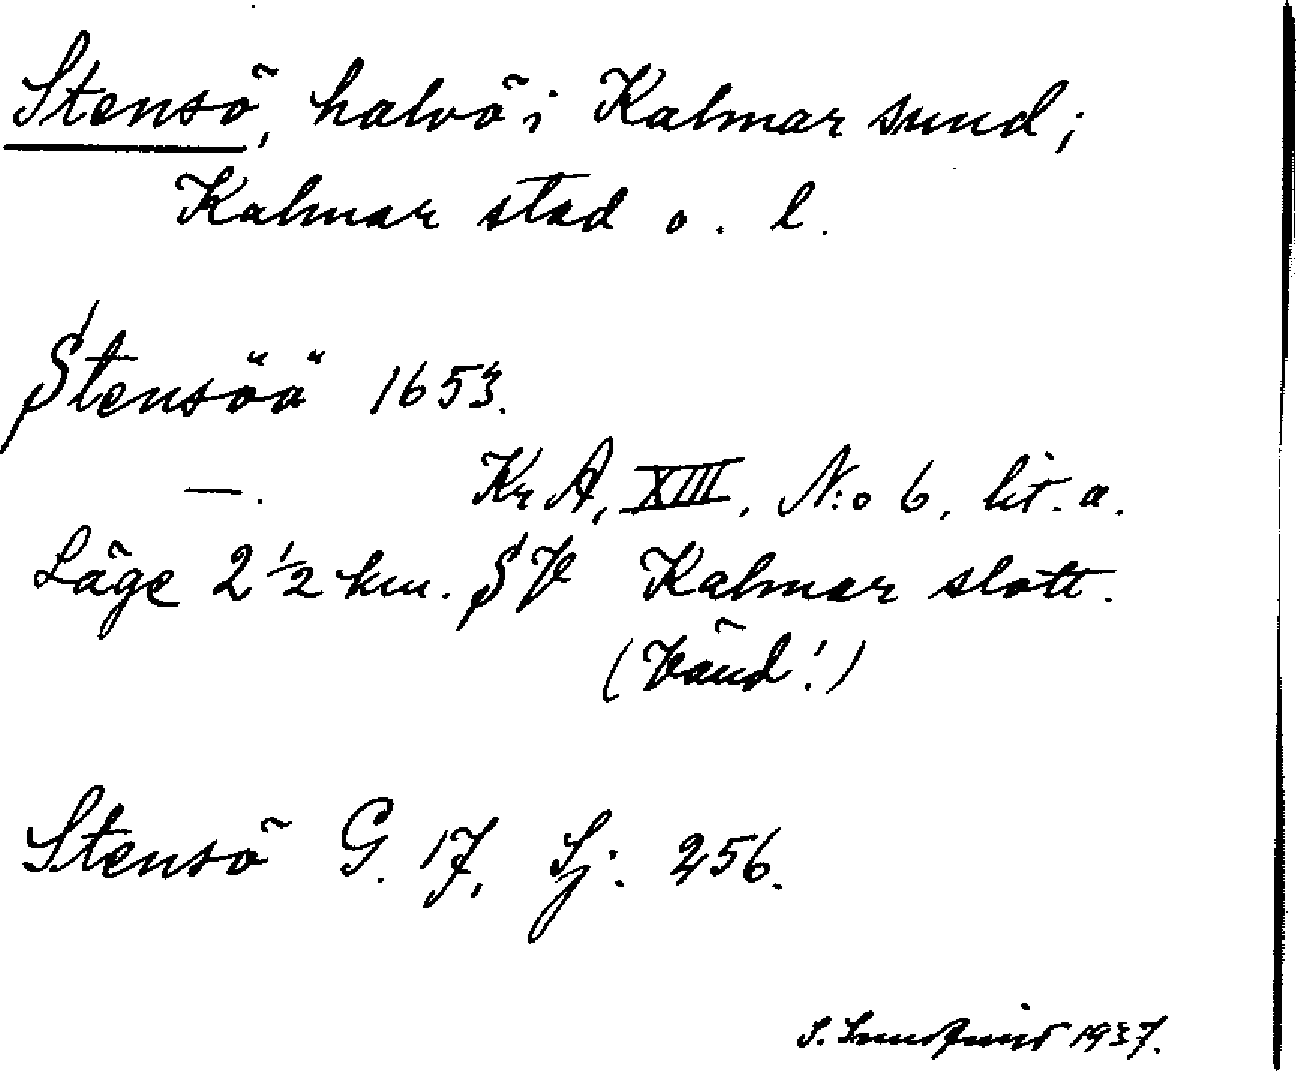 Stensö, halvö i Kalmar sund;
Kalmar stad o. l.
Stensöä 1653.
—. Kr A, XIII, N:o 6, lit. a.
Läge 2 1/2 km. SV Kalmar slott.
(Vänd!)
Stensö G. 17, Sj: 256.
S. Lundquist 1937.